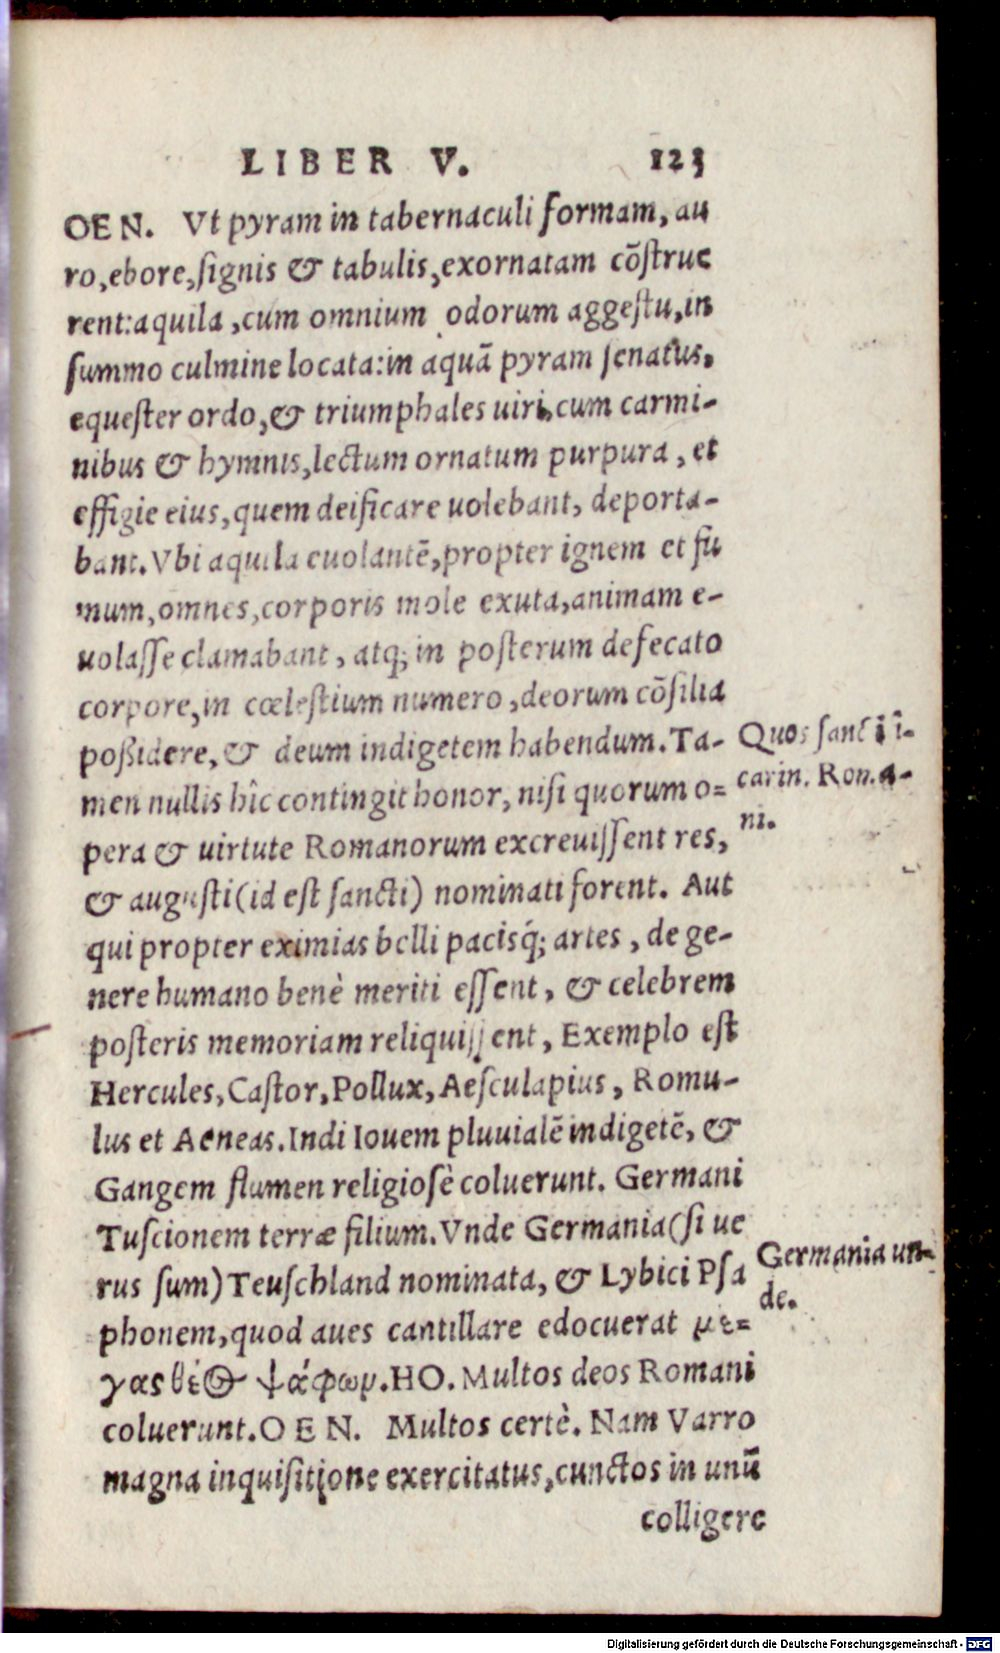 LIBER V. 123
OEN. Vt pyram in tabernaculi formam, au
ro, ebore, signis & tabulis, exornatam cõstrue
rent: aquila, cum omnium odorum aggestu, in
summo culmine locata: in aquã pyram senatus.
equester ordo, & triumphales uiri, cum carmi-
nibus & hymnis, lectum ornatum purpura, et
effigie eius, quem deificare uolebant, deporta-
bant. Vbi aquila euolantẽ, propter ignem et fu
mum, omnes, corporis mole exuta, animam e-
uolasse clamabant, atq; in posterum defecato
corpore, in cœlestium numero, deorum cõsilia
poßidere, & deum indigetem habendum. Ta-
men nullis hîc contingit honor, nisi quorum o=
pera & uirtute Romanorum excreuissent res,
& augusti (id est sancti) nominati forent. Aut
qui propter eximias belli pacisq́; artes, de ge-
nere humano benè meriti essent, & celebrem
posteris memoriam reliquissent, Exemplo est
Hercules, Castor, Pollux, Aesculapius, Romu-
lus et Aeneas. Indi Iouem pluuialẽ indigetẽ, &
Gangem flumen religiosè coluerunt. Germani
Tuscionem terræ filium. Vnde Germania (si ue
rus sum) Teuschland nominata, & Lybici Psa
phonem, quod aues cantillare edocuerat με=
γας θεὸς ψάφωμ. HO. Multos deos Romani
coluerunt. OEN. Multos certè. Nam Varro
magna inquisitione exercitatus, cunctos in unũ
colligere
Quos sancti î-
carin. Roma-
ni.
Germania un-
de.
Digitalisierung gefördert durch die Deutsche Forschungsgemeinschaft - DFG